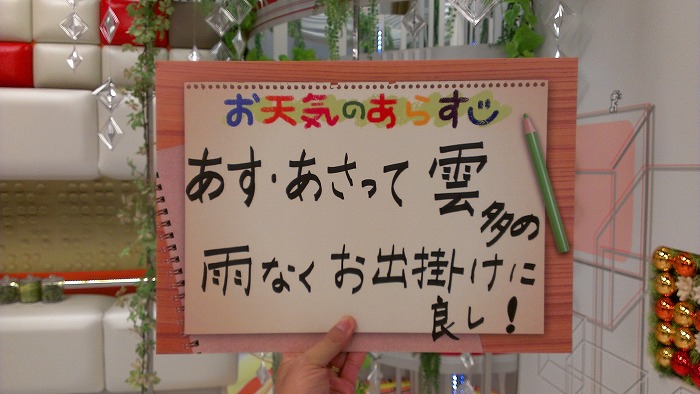 お天気のあらすじ
あす・あさって 雲多め
雨なく お出掛けに
良し!